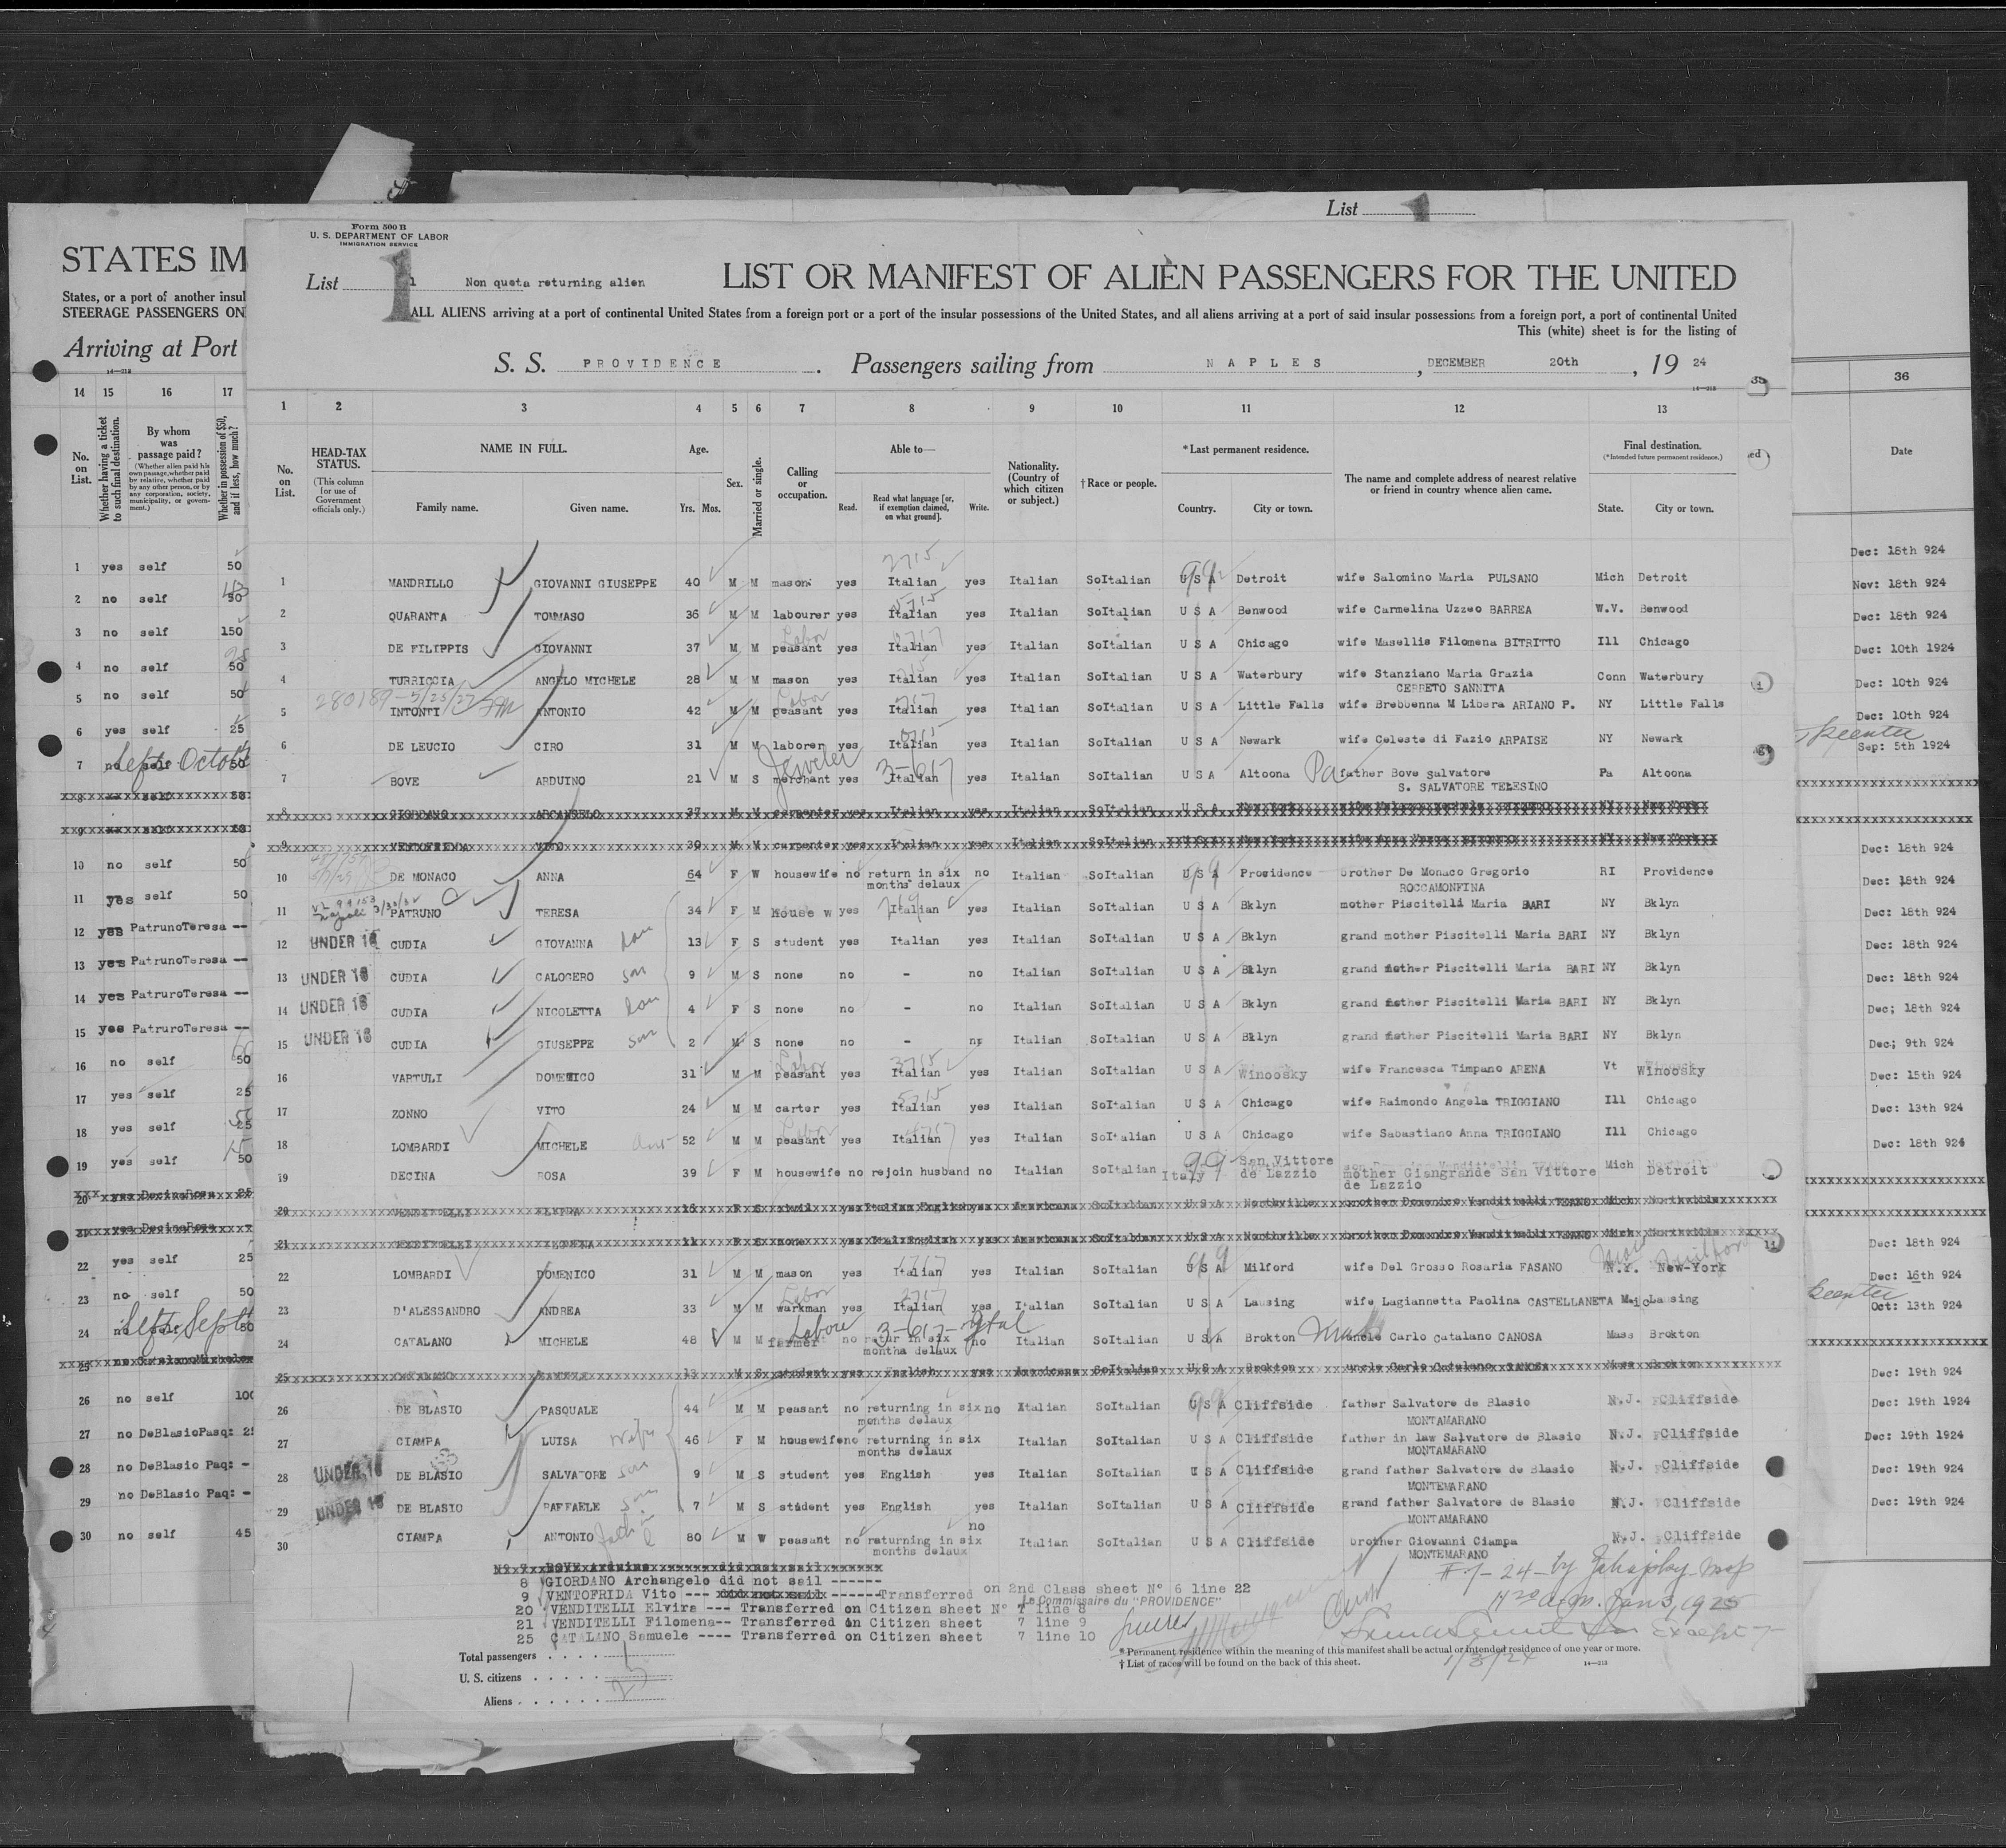 List 1
Form 500 B
U. S. DEPARTMENT OF LABOR
IMMIGRATION SERVICE
List 1 Non quota returning alien
LIST OR MANIFEST OF ALIEN PASSENGERS FOR THE UNITED
ALL ALIENS arriving at a port of continental United States from a foreign port or a port of the insular possessions of the United States, and all aliens arriving at a port of said insular possessions from a foreign port, a port of continental United
This (white) sheet is for the listing of
S. S. PROVIDENCE. Passengers sailing from NAPLES, DECEMBER 20th, 19 24
14—213
STATES IM
States, or a port of another insul
STEERAGE PASSENGERS ON
Arriving at Port
14—213
14 15 16 17
No. on List.
Whether having a ticket to such final destination.
By whom was passage paid?
(Whether alien paid his own passage, whether paid by relative, whether paid by any other person, or by any corporation, society, municipality, or government.)
Whether in possession of $50, and if less, how much?
1 2 3 4 5 6 7 8 9 10 11 12 13
No. on List.
HEAD-TAX STATUS.
(This column for use of Government officials only.)
NAME IN FULL.
Family name. Given name.
Age.
Yrs. Mos.
Sex.
Married or single.
Calling or occupation.
Able to—
Read. Read what language [or, if exemption claimed, on what ground]. Write.
Nationality. (Country of which citizen or subject.)
†Race or people.
*Last permanent residence.
Country. City or town.
The name and complete address of nearest relative or friend in country whence alien came.
Final destination.
(*Intended future permanent residence.)
State. City or town.
36
Date
1 yes self 50
2 no self 50
3 no self 150
4 no self 50
5 no self 50
6 yes self 25
7 no self 50
10 no self 50
11 yes self 50
12 yes PatrunoTeresa --
13 yes PatrunoTeresa --
14 yes PatruroTeresa --
15 yes PatruroTeresa --
16 no self 50
17 yes self 25
18 yes self 25
19 yes self 50
20 yes DecinaRosa 25
21 yes DecinaRosa
22 yes self 25
23 no self 50
24 no self 50
25 no CatalanoMichele
26 no self 100
27 no DeBlasioPasq: 25
28 no DeBlasio Paq: -
29 no DeBlasio Paq: -
30 no self 45
1 MANDRILLO GIOVANNI GIUSEPPE 40 M M mason yes Italian yes Italian SoItalian U S A Detroit wife Salomino Maria PULSANO Mich Detroit
2 QUARANTA TOMMASO 36 M M labourer yes Italian yes Italian SoItalian U S A Benwood wife Carmelina Uzzeo BARREA W.V. Benwood
3 DE FILIPPIS GIOVANNI 37 M M peasant Labor yes Italian yes Italian SoItalian U S A Chicago wife Masellis Filomena BITRITTO Ill Chicago
4 TURRICCIA ANGELO MICHELE 28 M M mason yes Italian yes Italian SoItalian U S A Waterbury wife Stanziano Maria Grazia Conn Waterbury
CERRETO SANNITA
280189-5/23/27
5 INTONTI ANTONIO 42 M M peasant Labor yes Italian yes Italian SoItalian U S A Little Falls wife Brebbenna M Libera ARIANO P. NY Little Falls
6 DE LEUCIO CIRO 31 M M laborer yes Italian yes Italian SoItalian U S A Newark wife Celeste di Fazio ARPAISE NY Newark
7 BOVE ARDUINO 21 M S merchant Jeweler yes Italian 3-617 yes Italian SoItalian U S A Altoona Pa father Bove Salvatore Pa Altoona
S. SALVATORE TELESINO
8 GIORDANO ARCANGELO 37 M M carpenter yes Italian yes Italian SoItalian U S A New York NY New York
9 VENTOFRIDDA VITO 30 M M carpenter yes Italian yes Italian SoItalian U S A New York NY New York
10 DE MONACO ANNA 64 F W housewife no return in six no Italian SoItalian U S A Providence brother De Monaco Gregorio RI Providence
months delaux ROCCAMONFINA
11 PATRUNO TERESA 34 F M House w yes Italian yes Italian SoItalian U S A Bklyn mother Piscitelli Maria BARI NY Bklyn
12 UNDER 16 CUDIA GIOVANNA 13 F S student yes Italian yes Italian SoItalian U S A Bklyn grand mother Piscitelli Maria BARI NY Bklyn
13 UNDER 16 CUDIA CALOGERO son 9 M S none no - no Italian SoItalian U S A Bklyn grand mother Piscitelli Maria BARI NY Bklyn
14 UNDER 16 CUDIA NICOLETTA 4 F S none no - no Italian SoItalian U S A Bklyn grand mother Piscitelli Maria BARI NY Bklyn
15 UNDER 16 CUDIA GIUSEPPE son 2 M S none no - no Italian SoItalian U S A Bklyn grand mother Piscitelli Maria BARI NY Bklyn
16 VARTULI DOMENICO 31 M M peasant Labor yes Italian yes Italian SoItalian U S A Winoosky wife Francesca Timpano ARENA Vt Winoosky
17 ZONNO VITO 24 M M carter yes Italian yes Italian SoItalian U S A Chicago wife Raimondo Angela TRIGGIANO Ill Chicago
18 LOMBARDI MICHELE 52 M M peasant Labor yes Italian yes Italian SoItalian U S A Chicago wife Sabastiano Anna TRIGGIANO Ill Chicago
19 DECINA ROSA 39 F M housewife no rejoin husband no Italian SoItalian Italy San Vittore de Lazzio mother Giangrande San Vittore de Lazzio Mich Detroit
20 VENDITELLI ELVIRA 15 F S civil yes Italian English yes Americana SoItalian U S A Northville brother Domenico Vendittelli TEANO Mich Northville
21 VENDITELLI FILOMENA 11 F S none yes Ital English yes Americana SoItalian U S A Northville brother Domenico Vendittelli TEANO Mich Northville
22 LOMBARDI DOMENICO 31 M M mason yes Italian yes Italian SoItalian U S A Milford wife Del Grosso Rosaria FASANO N.Y. New-York
23 D'ALESSANDRO ANDREA 33 M M warkman Labor yes Italian yes Italian SoItalian U S A Lausing wife Lagiannetta Paolina CASTELLANETA Mic Lausing
24 CATALANO MICHELE 48 M M farmer no retur in six no Italian SoItalian U S A Brokton uncle Carlo Catalano CANOSA Mass Brokton
months delaux
25 CATALANO SAMUELE 13 M S student yes English yes Americana SoItalian U S A Brokton uncle Carlo Catalano CANOSA Mass Brokton
26 DE BLASIO PASQUALE 44 M M peasant no returning in six no Italian SoItalian U S A Cliffside father Salvatore de Blasio N.J. Cliffside
months delaux MONTAMARANO
27 CIAMPA LUISA wife 46 F M housewife no returning in six Italian SoItalian U S A Cliffside father in law Salvatore de Blasio N.J. Cliffside
months delaux MONTAMARANO
28 UNDER 16 DE BLASIO SALVATORE son 9 M S student yes English yes Italian SoItalian U S A Cliffside grand father Salvatore de Blasio N.J. Cliffside
MONTEMARANO
29 UNDER 16 DE BLASIO RAFFAELE son 7 M S student yes English yes Italian SoItalian U S A Cliffside grand father Salvatore de Blasio N.J. Cliffside
MONTAMARANO
30 CIAMPA ANTONIO 80 M W peasant no returning in six no Italian SoItalian U S A Cliffside brother Giovanni Ciampa N.J. Cliffside
months delaux MONTEMARANO
No 7 BOVE Arduino did not sail
8 GIORDANO Archangelo did not sail ------
9 VENTOFRIDA Vito --- did not sail ------Transferred on 2nd Class sheet N° 6 line 22
20 VENDITELLI Elvira --- Transferred on Citizen sheet N° 7 line 8
21 VENDITELLI Filomena-- Transferred on Citizen sheet 7 line 9
25 CATALANO Samuele ---- Transferred on Citizen sheet 7 line 10
Le Commissaire du "PROVIDENCE"
Jan 3, 1925
Total passengers
U. S. citizens
Aliens
* Permanent residence within the meaning of this manifest shall be actual or intended residence of one year or more.
† List of races will be found on the back of this sheet.
14—213
1/3/24
Dec: 18th 924
Nov: 18th 924
Dec: 18th 924
Dec: 10th 1924
Dec: 10th 924
Dec: 10th 924
Sep: 5th 1924
Dec: 18th 924
Dec: 18th 924
Dec: 18th 924
Dec: 18th 924
Dec: 18th 924
Dec; 18th 924
Dec; 9th 924
Dec: 15th 924
Dec: 13th 924
Dec: 18th 924
Dec: 18th 924
Dec: 16th 924
Oct: 13th 924
Dec: 19th 924
Dec: 19th 1924
Dec: 19th 1924
Dec: 19th 924
Dec: 19th 924